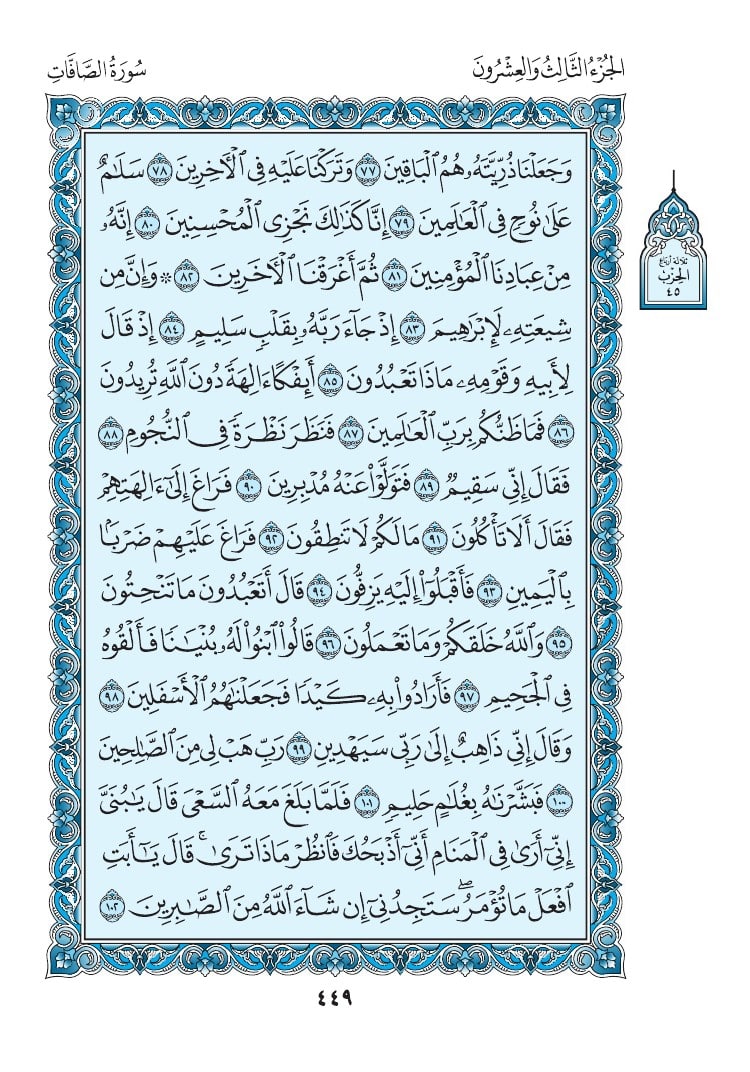 الجُزْءُ الثَّالِثُ وَالعِشْرُونَ
سُورَةُ الصَّافَّاتِ
وَجَعَلْنَا ذُرِّيَّتَهُۥ هُمُ ٱلْبَاقِينَ ٧٧ وَتَرَكْنَا عَلَيْهِ فِي ٱلْـَٔاخِرِينَ ٧٨ سَلَٰمٌ
عَلَىٰ نُوحٍ فِي ٱلْعَٰلَمِينَ ٧٩ إِنَّا كَذَٰلِكَ نَجْزِي ٱلْمُحْسِنِينَ ٨٠ إِنَّهُۥ
مِنْ عِبَادِنَا ٱلْمُؤْمِنِينَ ٨١ ثُمَّ أَغْرَقْنَا ٱلْـَٔاخَرِينَ ٨٢ ۞ وَإِنَّ مِن
شِيعَتِهِۦ لَإِبْرَٰهِيمَ ٨٣ إِذْ جَآءَ رَبَّهُۥ بِقَلْبٍ سَلِيمٍ ٨٤ إِذْ قَالَ
لِأَبِيهِ وَقَوْمِهِۦ مَاذَا تَعْبُدُونَ ٨٥ أَئِفْكًا ءَالِهَةً دُونَ ٱللَّهِ تُرِيدُونَ
٨٦ فَمَا ظَنُّكُم بِرَبِّ ٱلْعَٰلَمِينَ ٨٧ فَنَظَرَ نَظْرَةً فِي ٱلنُّجُومِ ٨٨
فَقَالَ إِنِّي سَقِيمٌ ٨٩ فَتَوَلَّوْا۟ عَنْهُ مُدْبِرِينَ ٩٠ فَرَاغَ إِلَىٰٓ ءَالِهَتِهِمْ
فَقَالَ أَلَا تَأْكُلُونَ ٩١ مَا لَكُمْ لَا تَنطِقُونَ ٩٢ فَرَاغَ عَلَيْهِمْ ضَرْبًۢا
بِٱلْيَمِينِ ٩٣ فَأَقْبَلُوٓا۟ إِلَيْهِ يَزِفُّونَ ٩٤ قَالَ أَتَعْبُدُونَ مَا تَنْحِتُونَ
٩٥ وَٱللَّهُ خَلَقَكُمْ وَمَا تَعْمَلُونَ ٩٦ قَالُوا۟ ٱبْنُوا۟ لَهُۥ بُنْيَٰنًا فَأَلْقُوهُ
فِي ٱلْجَحِيمِ ٩٧ فَأَرَادُوا۟ بِهِۦ كَيْدًا فَجَعَلْنَٰهُمُ ٱلْأَسْفَلِينَ ٩٨
وَقَالَ إِنِّي ذَاهِبٌ إِلَىٰ رَبِّي سَيَهْدِينِ ٩٩ رَبِّ هَبْ لِي مِنَ ٱلصَّٰلِحِينَ
١٠٠ فَبَشَّرْنَٰهُ بِغُلَٰمٍ حَلِيمٍ ١٠١ فَلَمَّا بَلَغَ مَعَهُ ٱلسَّعْيَ قَالَ يَٰبُنَيَّ
إِنِّيٓ أَرَىٰ فِي ٱلْمَنَامِ أَنِّيٓ أَذْبَحُكَ فَٱنظُرْ مَاذَا تَرَىٰ ۚ قَالَ يَٰٓأَبَتِ
ٱفْعَلْ مَا تُؤْمَرُ ۖ سَتَجِدُنِيٓ إِن شَآءَ ٱللَّهُ مِنَ ٱلصَّٰبِرِينَ ١٠٢
ثلاثة أرباع
الحزب
٤٥
٤٤٩